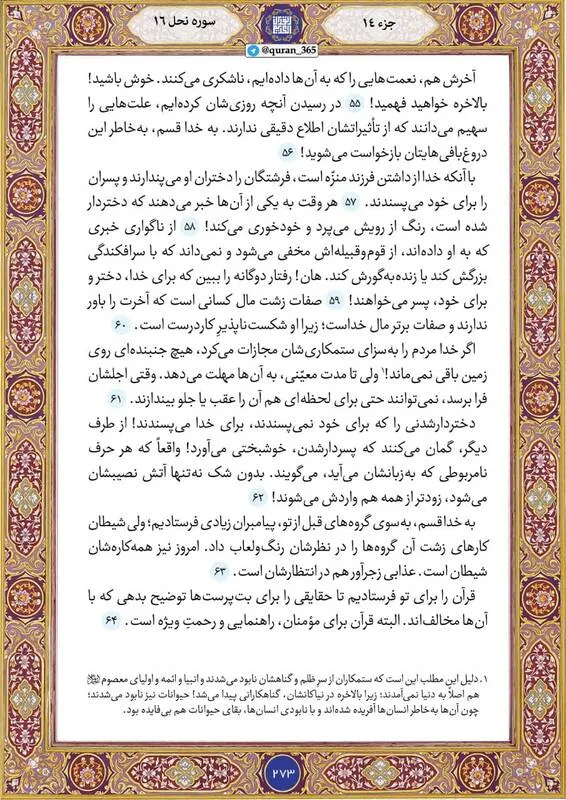 جزء ۱۴
سوره نحل ۱۶
@quran_365
آخرش هم، نعمت‌هایی را که به آن‌ها داده‌ایم، ناشکری می‌کنند. خوش باشید!
بالاخره خواهید فهمید! ۵۵ در رسیدن آنچه روزی‌شان کرده‌ایم، علت‌هایی را
سهیم می‌دانند که از تأثیراتشان اطلاع دقیقی ندارند. به خدا قسم، به‌خاطر این
دروغ‌بافی‌هایتان بازخواست می‌شوید! ۵۶
با آنکه خدا از داشتن فرزند منزّه است، فرشتگان را دختران او می‌پندارند و پسران
را برای خود می‌پسندند. ۵۷ هر وقت به یکی از آن‌ها خبر می‌دهند که دختردار
شده است، رنگ از رویش می‌پرد و خودخوری می‌کند! ۵۸ از ناگواری خبری
که به او داده‌اند، از قوم‌وقبیله‌اش مخفی می‌شود و نمی‌داند که با سرافکندگی
بزرگش کند یا زنده‌به‌گورش کند. هان! رفتار دوگانه را ببین که برای خدا، دختر و
برای خود، پسر می‌خواهند! ۵۹ صفات زشت مال کسانی است که آخرت را باور
ندارند و صفات برتر مال خداست؛ زیرا او شکست‌ناپذیرِ کاردرست است. ۶۰
اگر خدا مردم را به‌سزای ستمکاری‌شان مجازات می‌کرد، هیچ جنبنده‌ای روی
زمین باقی نمی‌ماند!۱ ولی تا مدت معیّنی، به آن‌ها مهلت می‌دهد. وقتی اجلشان
فرا برسد، نمی‌توانند حتی برای لحظه‌ای هم آن را عقب یا جلو بیندازند. ۶۱
دختردارشدنی را که برای خود نمی‌پسندند، برای خدا می‌پسندند! از طرف
دیگر، گمان می‌کنند که پسردارشدن، خوشبختی می‌آورد! واقعاً که هر حرف
نامربوطی که به‌زبانشان می‌آید، می‌گویند. بدون شک نه‌تنها آتش نصیبشان
می‌شود، زودتر از همه هم واردش می‌شوند! ۶۲
به خدا قسم، به‌سوی گروه‌های قبل از تو، پیامبران زیادی فرستادیم؛ ولی شیطان
کارهای زشت آن گروه‌ها را در نظرشان رنگ‌ولعاب داد. امروز نیز همه‌کاره‌شان
شیطان است. عذابی زجرآور هم در انتظارشان است. ۶۳
قرآن را برای تو فرستادیم تا حقایقی را برای بت‌پرست‌ها توضیح بدهی که با
آن‌ها مخالف‌اند. البته قرآن برای مؤمنان، راهنمایی و رحمتِ ویژه است. ۶۴
۱. دلیل این مطلب این است که ستمکاران از سرِ ظلم و گناهشان نابود می‌شدند و انبیا و ائمه و اولیای معصوم
هم اصلاً به دنیا نمی‌آمدند؛ زیرا بالاخره در نیاکانشان، گناهکارانی پیدا می‌شد! حیوانات نیز نابود می‌شدند؛
چون آن‌ها به‌خاطر انسان‌ها آفریده شده‌اند و با نابودی انسان‌ها، بقای حیوانات هم بی‌فایده بود.
۲۷۳